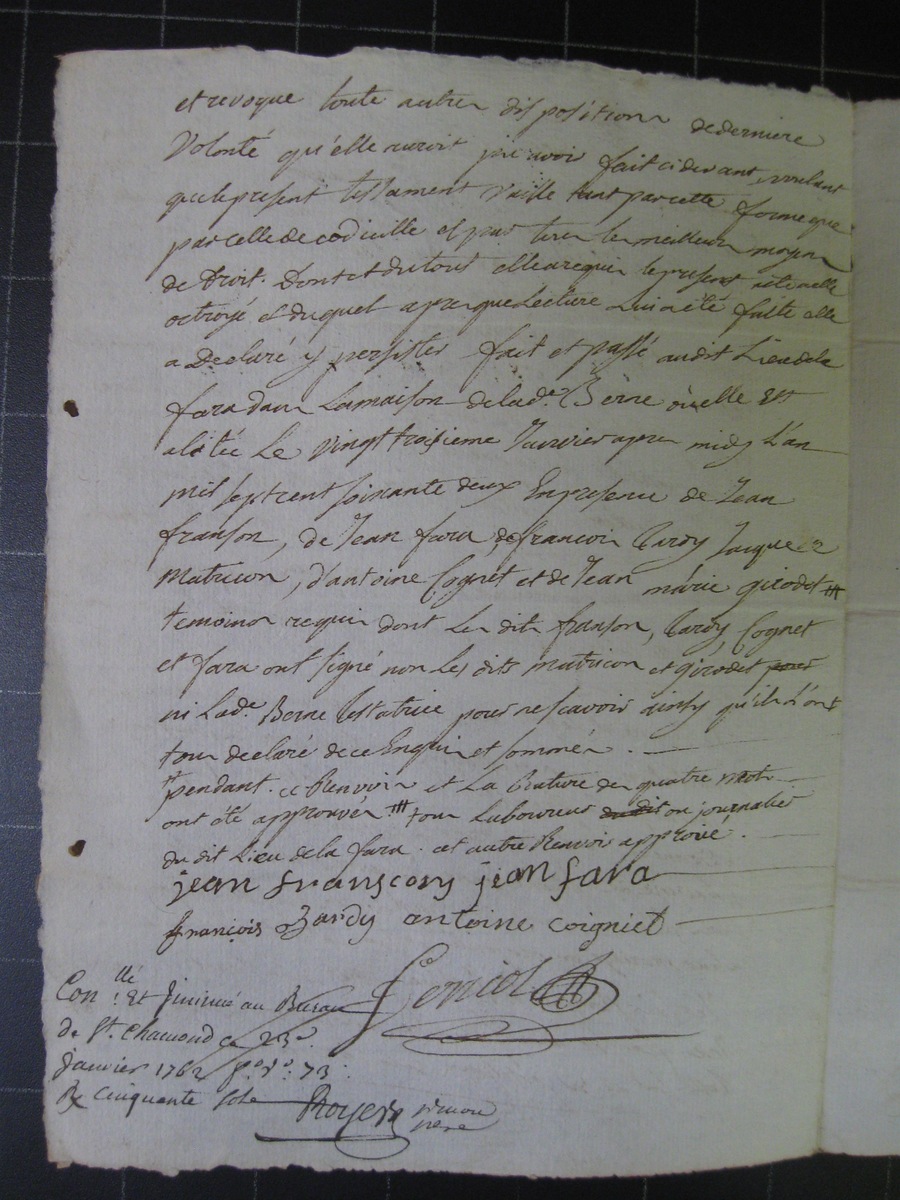 et revoque toute autre disposition de derniere
Volonté qu'elle auroit pu avoir fait cidevant, voulant
que le present testament vaille tant par cette forme que
par celle de codicille et par tous les meilleurs moyens
de Droit. Dont et du tout elle a requis le present acte a elle
octroyé et duquel apres que Lecture Lui a eté faite elle
a Declaré y persister fait et passé audit Lieu de la
fara dans La maison de lade. Berne où elle Est
alitée Le vingt troisieme Janvier apres midy L'an
mil sept cent soixante deux En presence de Jean
franson, de Jean fara, de francois Tardy Jacques
Matricon, d'antoine Cognet et de Jean marie girodet #
temoins requis dont Les dits franson, Tardy, Cognet
et fara ont signé non Les dits matricon et girodet
ni Lade. Berne testatrice pour ne scavoir ainsy qu'ils L'ont
tous declaré de ce Enquis et sommés.
pendant. ce Renvoir et La Rature de quatre mots
ont été approuvés # tous Laboureurs ou journalier
du dit Lieu de la fara. cet autre Renvoi approuvé.
jean franscon jean fara
françois Tardy antoine coigniet
Genicot
Conllé. Et Jnsinué au Bureau
de St. chamond ce 23e.
Janvier 1762 fo. ro. 73.
R cinquante sols Royer